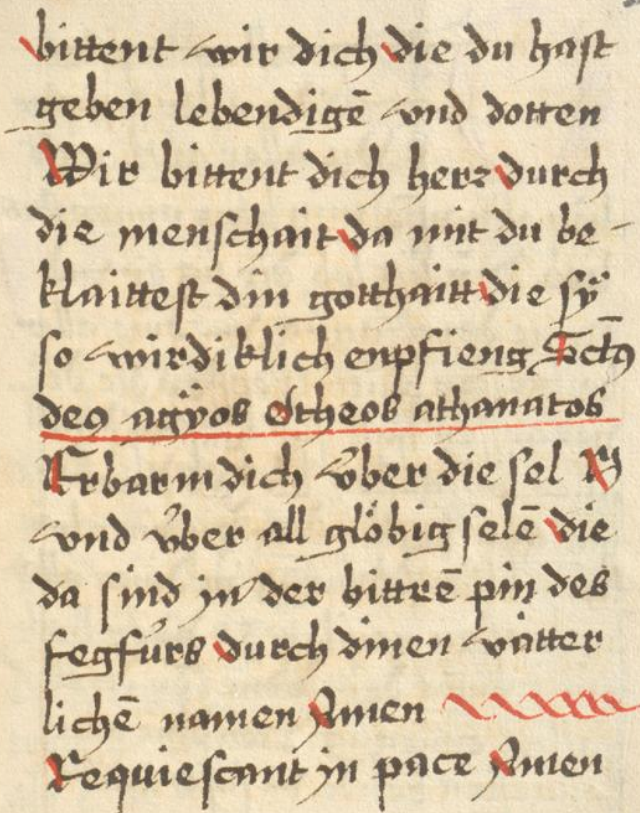 bittent wir dich die du hast
geben lebendigē vnd dotten
Wir bittent dich herr durch
die menschait da mit du be-
klaittest din gotthaitt die sÿ
so wirdiklich enpfieng Sct̄9
de9 agÿos Otheos athanatos
Erbarm dich v̈ber die sel N
vnd v̈ber all glöbig selē die
da sind in der bittrē pin des
fegfürs durch dinen vätter
lichē namen Amen
Requiescant in pace Amen